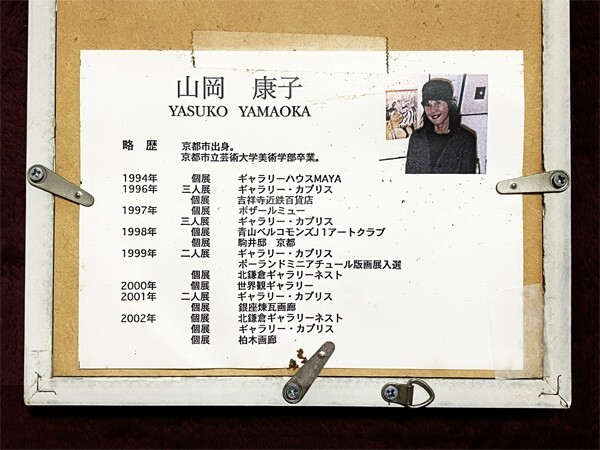 山岡 康子
YASUKO YAMAOKA
略 歴 京都市出身。
京都市立芸術大学美術学部卒業。
1994年 個展 ギャラリーハウスMAYA
1996年 三人展 ギャラリー・カプリス
個展 吉祥寺近鉄百貨店
1997年 個展 ボザールミュー
三人展 ギャラリー・カプリス
1998年 個展 青山ベルコモンズJ1アートクラブ
個展 駒井邸 京都
1999年 二人展 ギャラリー・カプリス
ポーランドミニアチュール版画展入選
個展 北鎌倉ギャラリーネスト
2000年 個展 世界観ギャラリー
2001年 二人展 ギャラリー・カプリス
個展 銀座煉瓦画廊
2002年 個展 北鎌倉ギャラリーネスト
個展 ギャラリー・カプリス
個展 柏木画廊